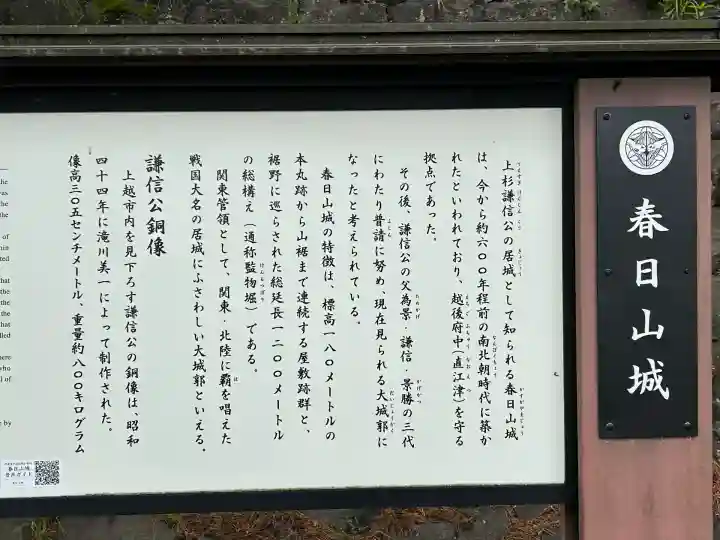 春日山城
上杉謙信公の居城として知られる春日山城
は、今から約六〇〇年程前の南北朝時代に築か
れたといわれており、越後府中(直江津)を守る
拠点であった。
その後、謙信公の父為景・謙信・景勝の三代
にわたり普請に努め、現在見られる大城郭に
なったと考えられている。
春日山城の特徴は、標高一八〇メートルの
本丸跡から山裾まで連続する屋敷跡群と、
裾野に巡らされた総延長一二〇〇メートル
の総構え(通称監物堀)である。
関東管領として、関東・北陸に覇を唱えた
戦国大名の居城にふさわしい大城郭といえる。
謙信公銅像
上越市内を見下ろす謙信公の銅像は、昭和
四十四年に滝川美一によって制作された。
像高三〇五センチメートル、重量約八〇〇キログラム
春日山城